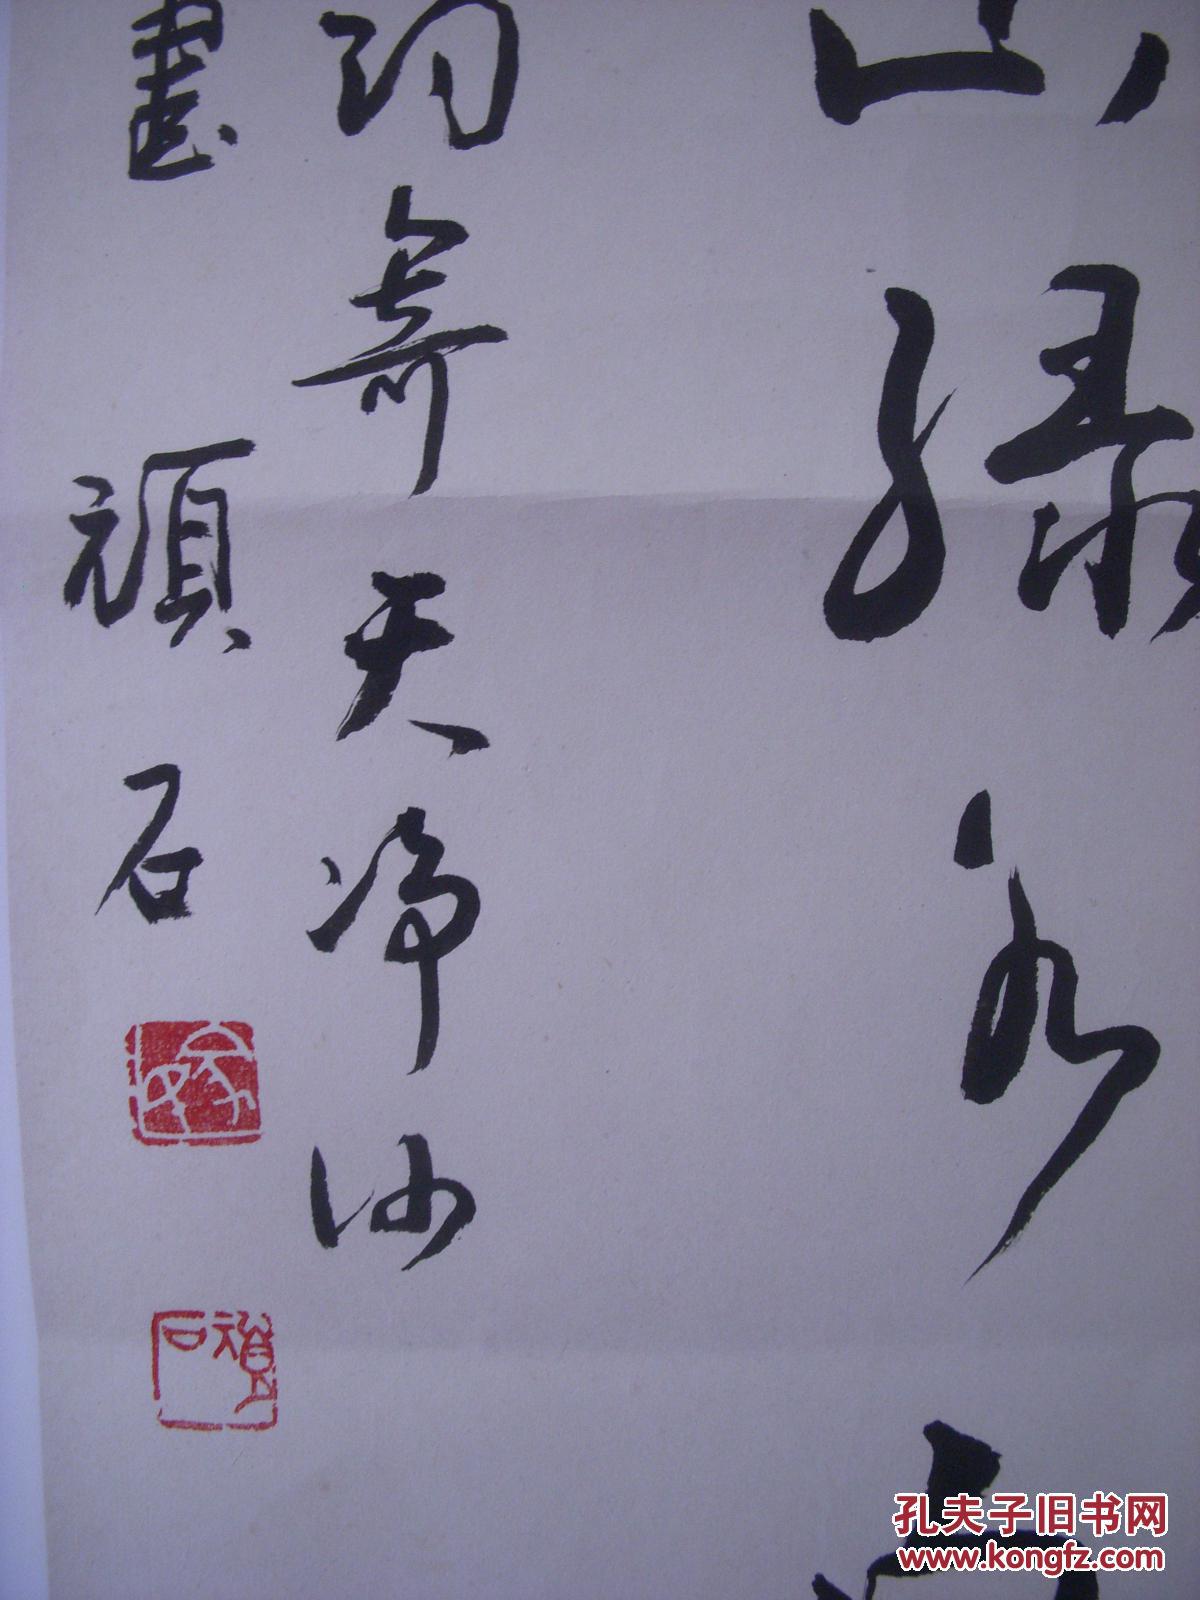 山绿水
朐寄天净沙
書 頑石
頑石
孔夫子旧书网
www.kongfz.com